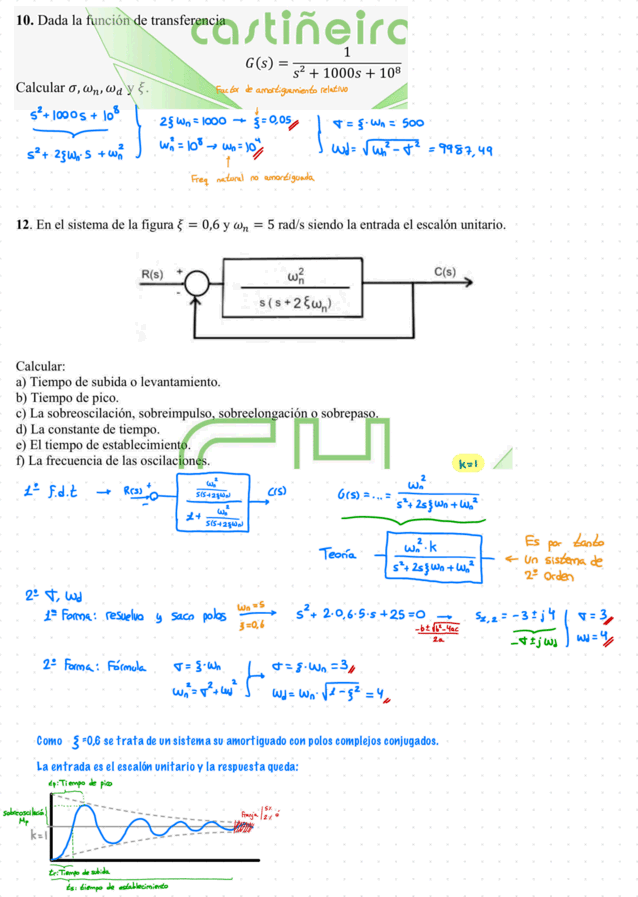 castiñeira
10. Dada la función de transferencia
G(s) = 1 / (s² + 1000s + 10⁸)
Calcular σ, ωn, ωd y ξ.
Factor de amortiguamiento relativo
s² + 1000s + 10⁸
s² + 2ξωn·s + ωn²
2ξωn = 1000 → ξ = 0,05
ωn² = 10⁸ → ωn = 10⁴
Freq natural no amortiguada
σ = ξ·ωn = 500
ωd = √(ωn² - σ²) = 9987,49
12. En el sistema de la figura ξ = 0,6 y ωn = 5 rad/s siendo la entrada el escalón unitario.
R(s) + - ωn² / s(s + 2ξωn) C(s)
Calcular:
a) Tiempo de subida o levantamiento.
b) Tiempo de pico.
c) La sobreoscilación, sobreimpulso, sobreelongación o sobrepaso.
d) La constante de tiempo.
e) El tiempo de establecimiento.
f) La frecuencia de las oscilaciones.
k=1
1º F.d.t → R(s) + - (ωn² / s(s+2ξωn)) / (1 + ωn² / s(s+2ξωn)) C(s)
G(s) = ... = ωn² / (s² + 2sξωn + ωn²)
Teoría ωn²·k / (s² + 2sξωn + ωn²) ← Es por tanto
un sistema de
2º Orden
2º σ, ωd
1ª Forma: resuelvo y saco polos ωn=5 ξ=0,6 → s² + 2·0,6·5·s + 25 = 0 → s1,2 = -3 ± j4 σ = 3
(-b ± √(b²-4ac)) / 2a -σ ± jωd ωd = 4
2ª Forma: Fórmula σ = ξ·ωn σ = ξ·ωn = 3
ωn² = σ² + ωd² ωd = ωn·√(1-ξ²) = 4
Como ξ=0,6 se trata de un sistema su amortiguado con polos complejos conjugados.
La entrada es el escalón unitario y la respuesta queda:
tp: Tiempo de pico
Mp
k=1
Franja 5% 2%
tr: Tiempo de subida
ts: tiempo de establecimiento